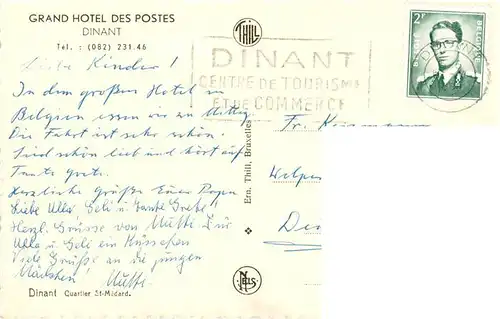 GRAND HOTEL DES POSTES
DINANT
Tel. : (082) 231.46
Liebe Kinder!
In dem großen Hotel in
Belgien essen wir zu Mittag.
Die Fahrt ist sehr schön.
Sind schön lieb und hört auf
Tante Grete.
Herzliche Grüße Euer Papa
Liebe Ulla, Geli u Tante Grete!
Herzl. Grüsse von Mutti. Für
Ulla u Geli ein Küsschen
Viele Grüße an die jungen
Mädchen! Mutti.
Dinant Quartier St-Médard.
THILL
Ern. Thill, Bruxelles
NELS
DINANT
CENTRE DE TOURISME
ET DE COMMERCE
2F
BELGIE
BELGIQUE
DINANT
Fr.